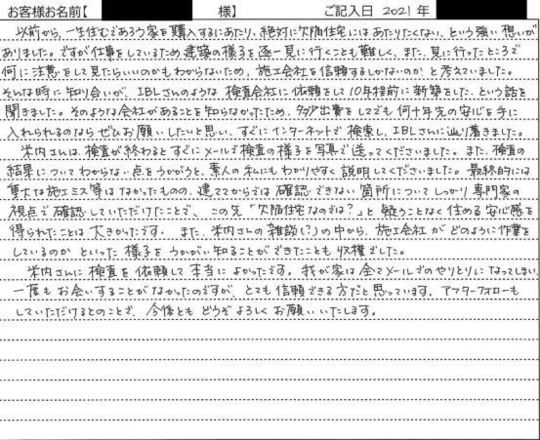 お客様お名前【 様】 ご記入日 2021年
以前から、一生住むであろう家を購入するにあたり、絶対に欠陥住宅にはあたりたくない、という強い想いが
ありました。ですが仕事をしているため建築の様子を逐一見に行くことも難しく、また、見に行ったところで
何に注意をして見たらいいのかもわからないため、施工会社を信頼するしかないのか、と考えていました。
そんな時に知り合いが、IBLさんのような検査会社に依頼をして10年程前に新築をした、という話を
聞きました。そのような会社があることを知らなかったため、多少出費をしてでも何十年先の安心を手に
入れられるのならぜひお願いしたいと思い、すぐにインターネットで検索し、IBLさんに辿り着きました。
米内さんは、検査が終わるとすぐにメールで検査の様子を写真で送ってくださいました。また、検査の
結果についてわからない点をうかがうと、素人の私にもわかりやすく説明してくださいました。最終的には
重大な施工ミス等はなかったものの、建ててからでは確認できない箇所についてしっかり専門家の
視点で確認していただけたことで、この先「欠陥住宅なのでは?」と疑うことなく住める安心感を
得られたことは大きかったです。また、米内さんの雑談(?)の中から、施工会社がどのように作業を
しているのかといった様子をうかがい知ることができたことも収穫でした。
米内さんに検査を依頼して本当によかったです。我が家は全てメールでのやりとりになってしまい、
一度もお会いすることがなかったのですが、とても信頼できる方だと思っています。アフターフォローも
していただけるとのことで、今後ともどうぞよろしくお願いいたします。